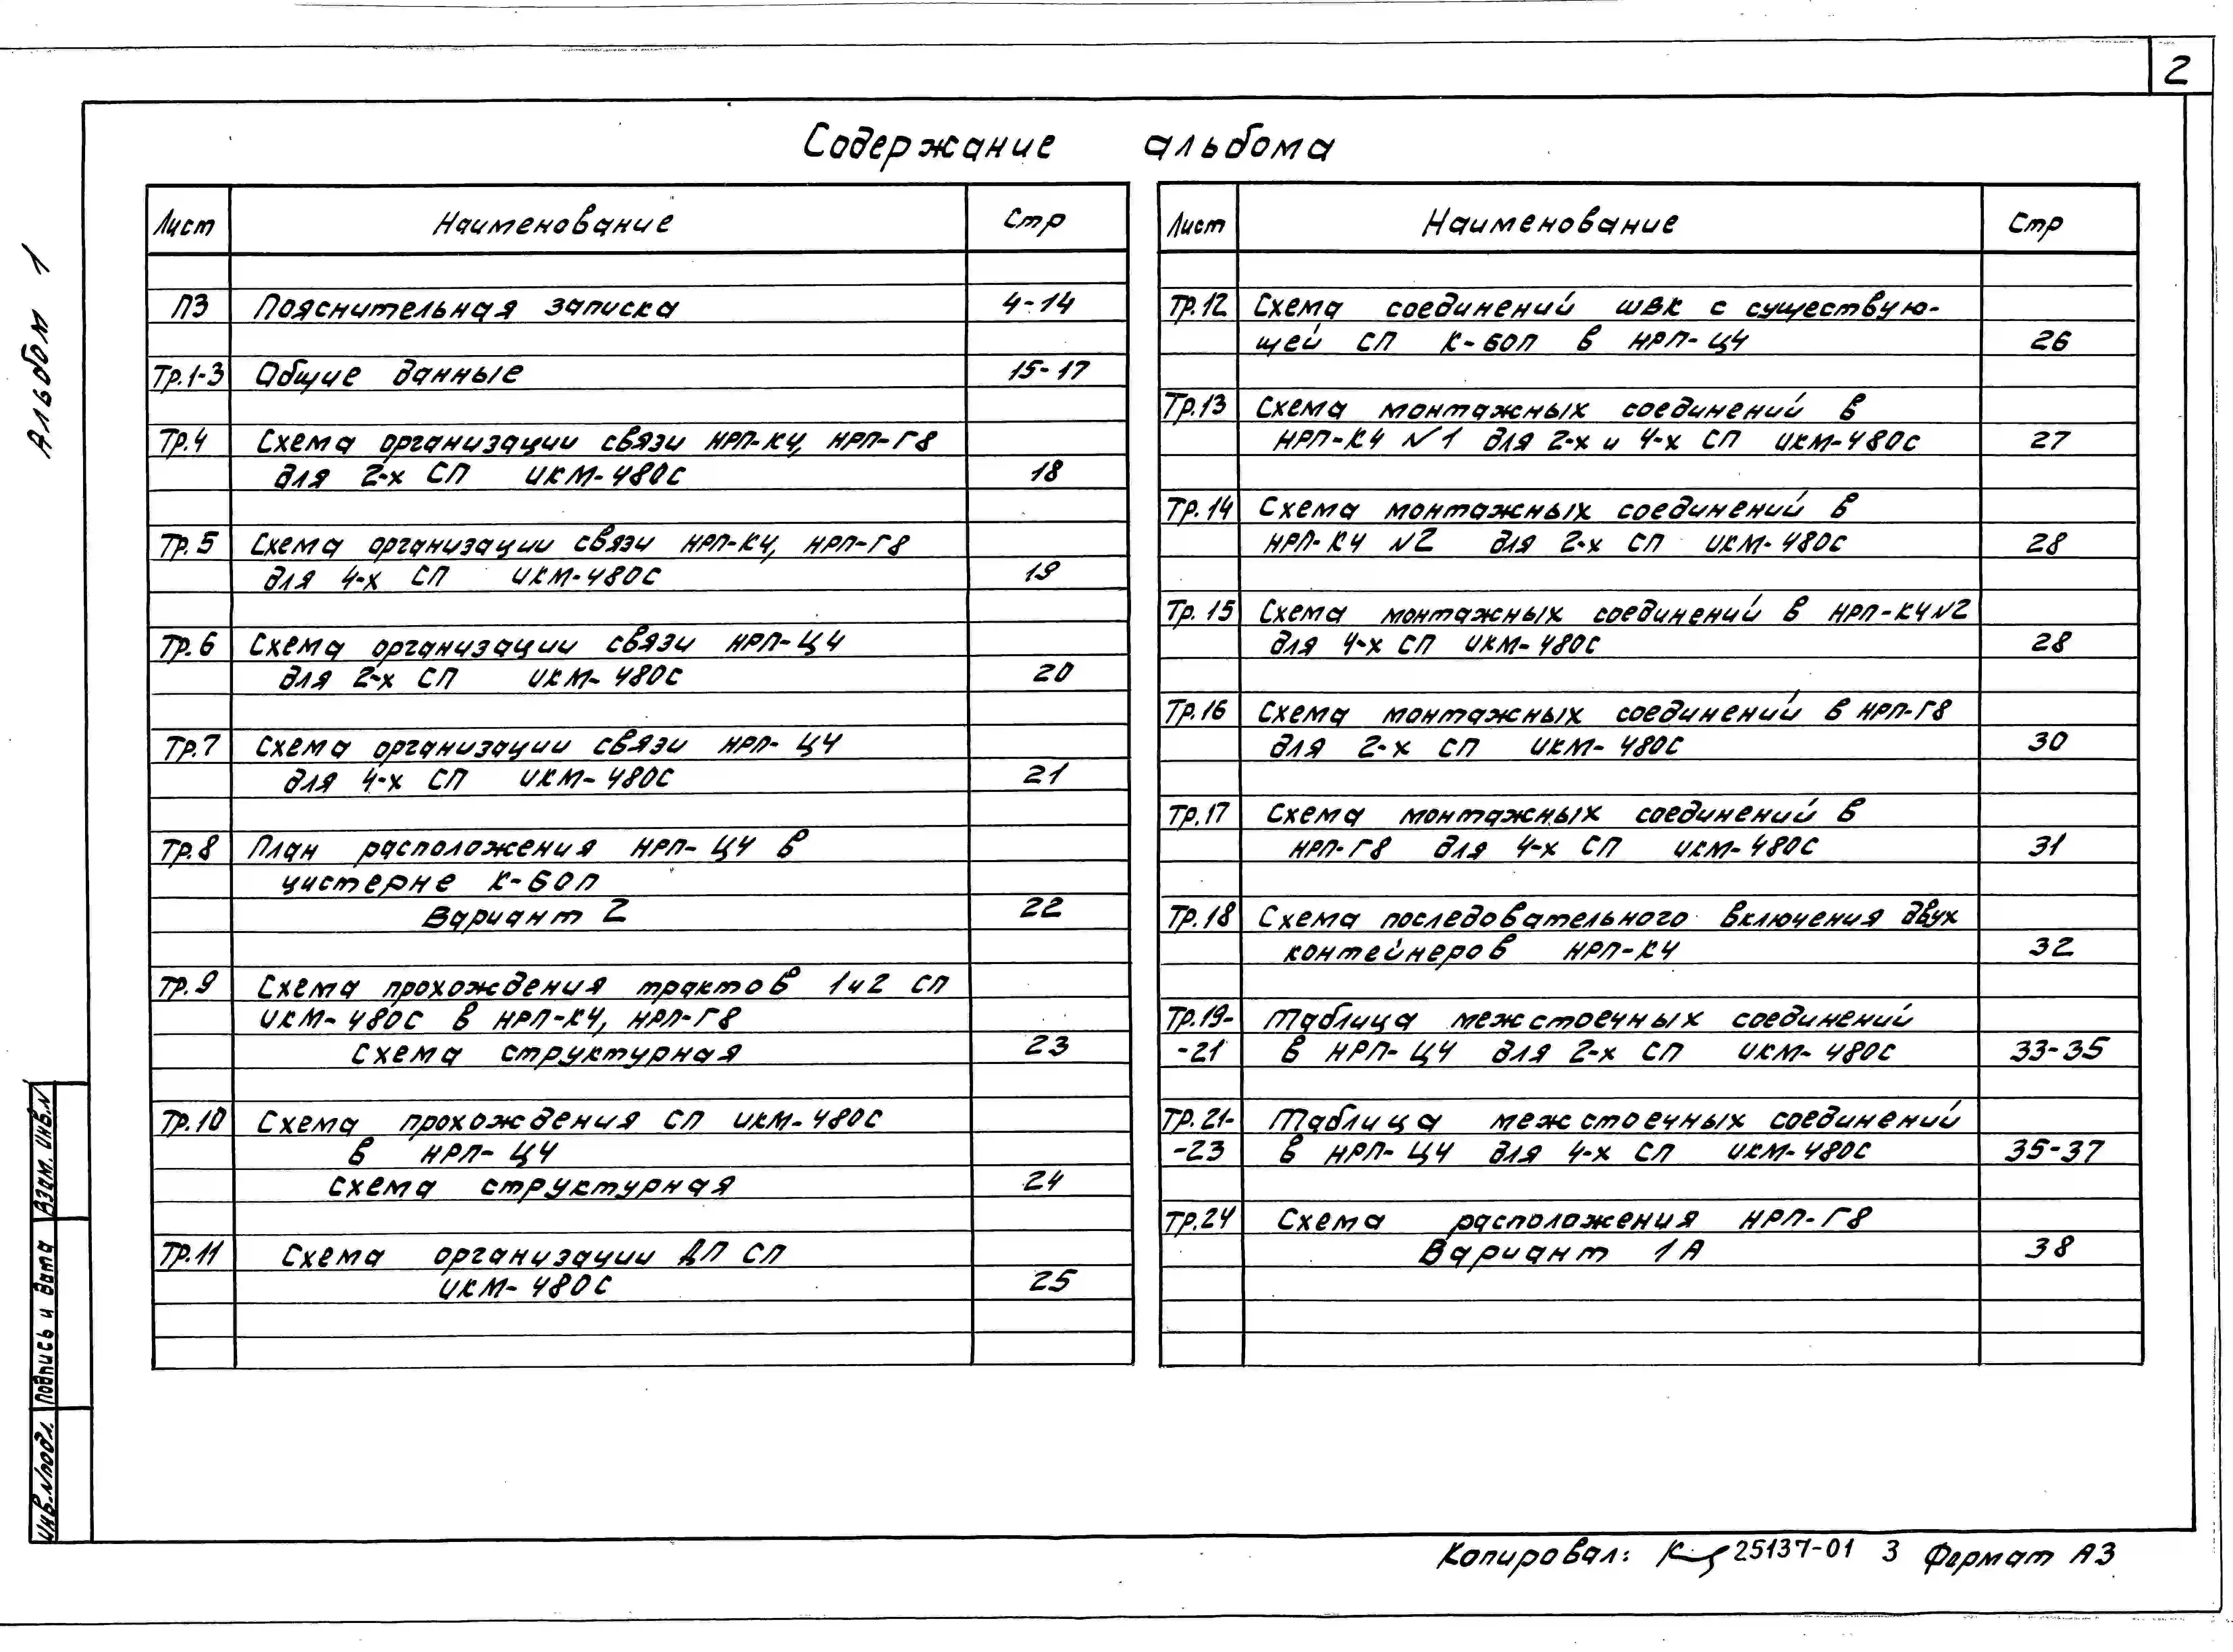 2
Содержание альбома
Альбом 1
Лист Наименование Стр
ПЗ Пояснительная записка 4-14
Тр.1-3 Общие данные 15-17
Тр.4 Схема организации связи НРП-К4, НРП-Г8
для 2-х СП ИКМ-480С 18
Тр.5 Схема организации связи НРП-К4, НРП-Г8
для 4-х СП ИКМ-480С 19
Тр.6 Схема организации связи НРП-Ц4
для 2-х СП ИКМ-480С 20
Тр.7 Схема организации связи НРП-Ц4
для 4-х СП ИКМ-480С 21
Тр.8 План расположения НРП-Ц4 в
цистерне К-60п
Вариант 2 22
Тр.9 Схема прохождения трактов 1и2 СП
ИКМ-480С в НРП-К4, НРП-Г8
Схема структурная 23
Тр.10 Схема прохождения СП ИКМ-480С
в НРП-Ц4
Схема структурная 24
Тр.11 Схема организации ДП СП
ИКМ-480С 25
Лист Наименование Стр
Тр.12 Схема соединений ШВК с существую-
щей СП К-60п в НРП-Ц4 26
Тр.13 Схема монтажных соединений в
НРП-К4 №1 для 2-х и 4-х СП ИКМ-480С 27
Тр.14 Схема монтажных соединений в
НРП-К4 №2 для 2-х СП ИКМ-480С 28
Тр.15 Схема монтажных соединений в НРП-К4№2
для 4-х СП ИКМ-480С 28
Тр.16 Схема монтажных соединений в НРП-Г8
для 2-х СП ИКМ-480С 30
Тр.17 Схема монтажных соединений в
НРП-Г8 для 4-х СП ИКМ-480С 31
Тр.18 Схема последовательного включения двух
контейнеров НРП-К4 32
Тр.19- Таблица межстоечных соединений
-21 в НРП-Ц4 для 2-х СП ИКМ-480С 33-35
Тр.21- Таблица межстоечных соединений
-23 в НРП-Ц4 для 4-х СП ИКМ-480С 35-37
Тр.24 Схема расположения НРП-Г8
Вариант 1А 38
Инв.№подл. Подпись и дата Взам. инв.№
Копировал: 25137-01 3 Формат А3